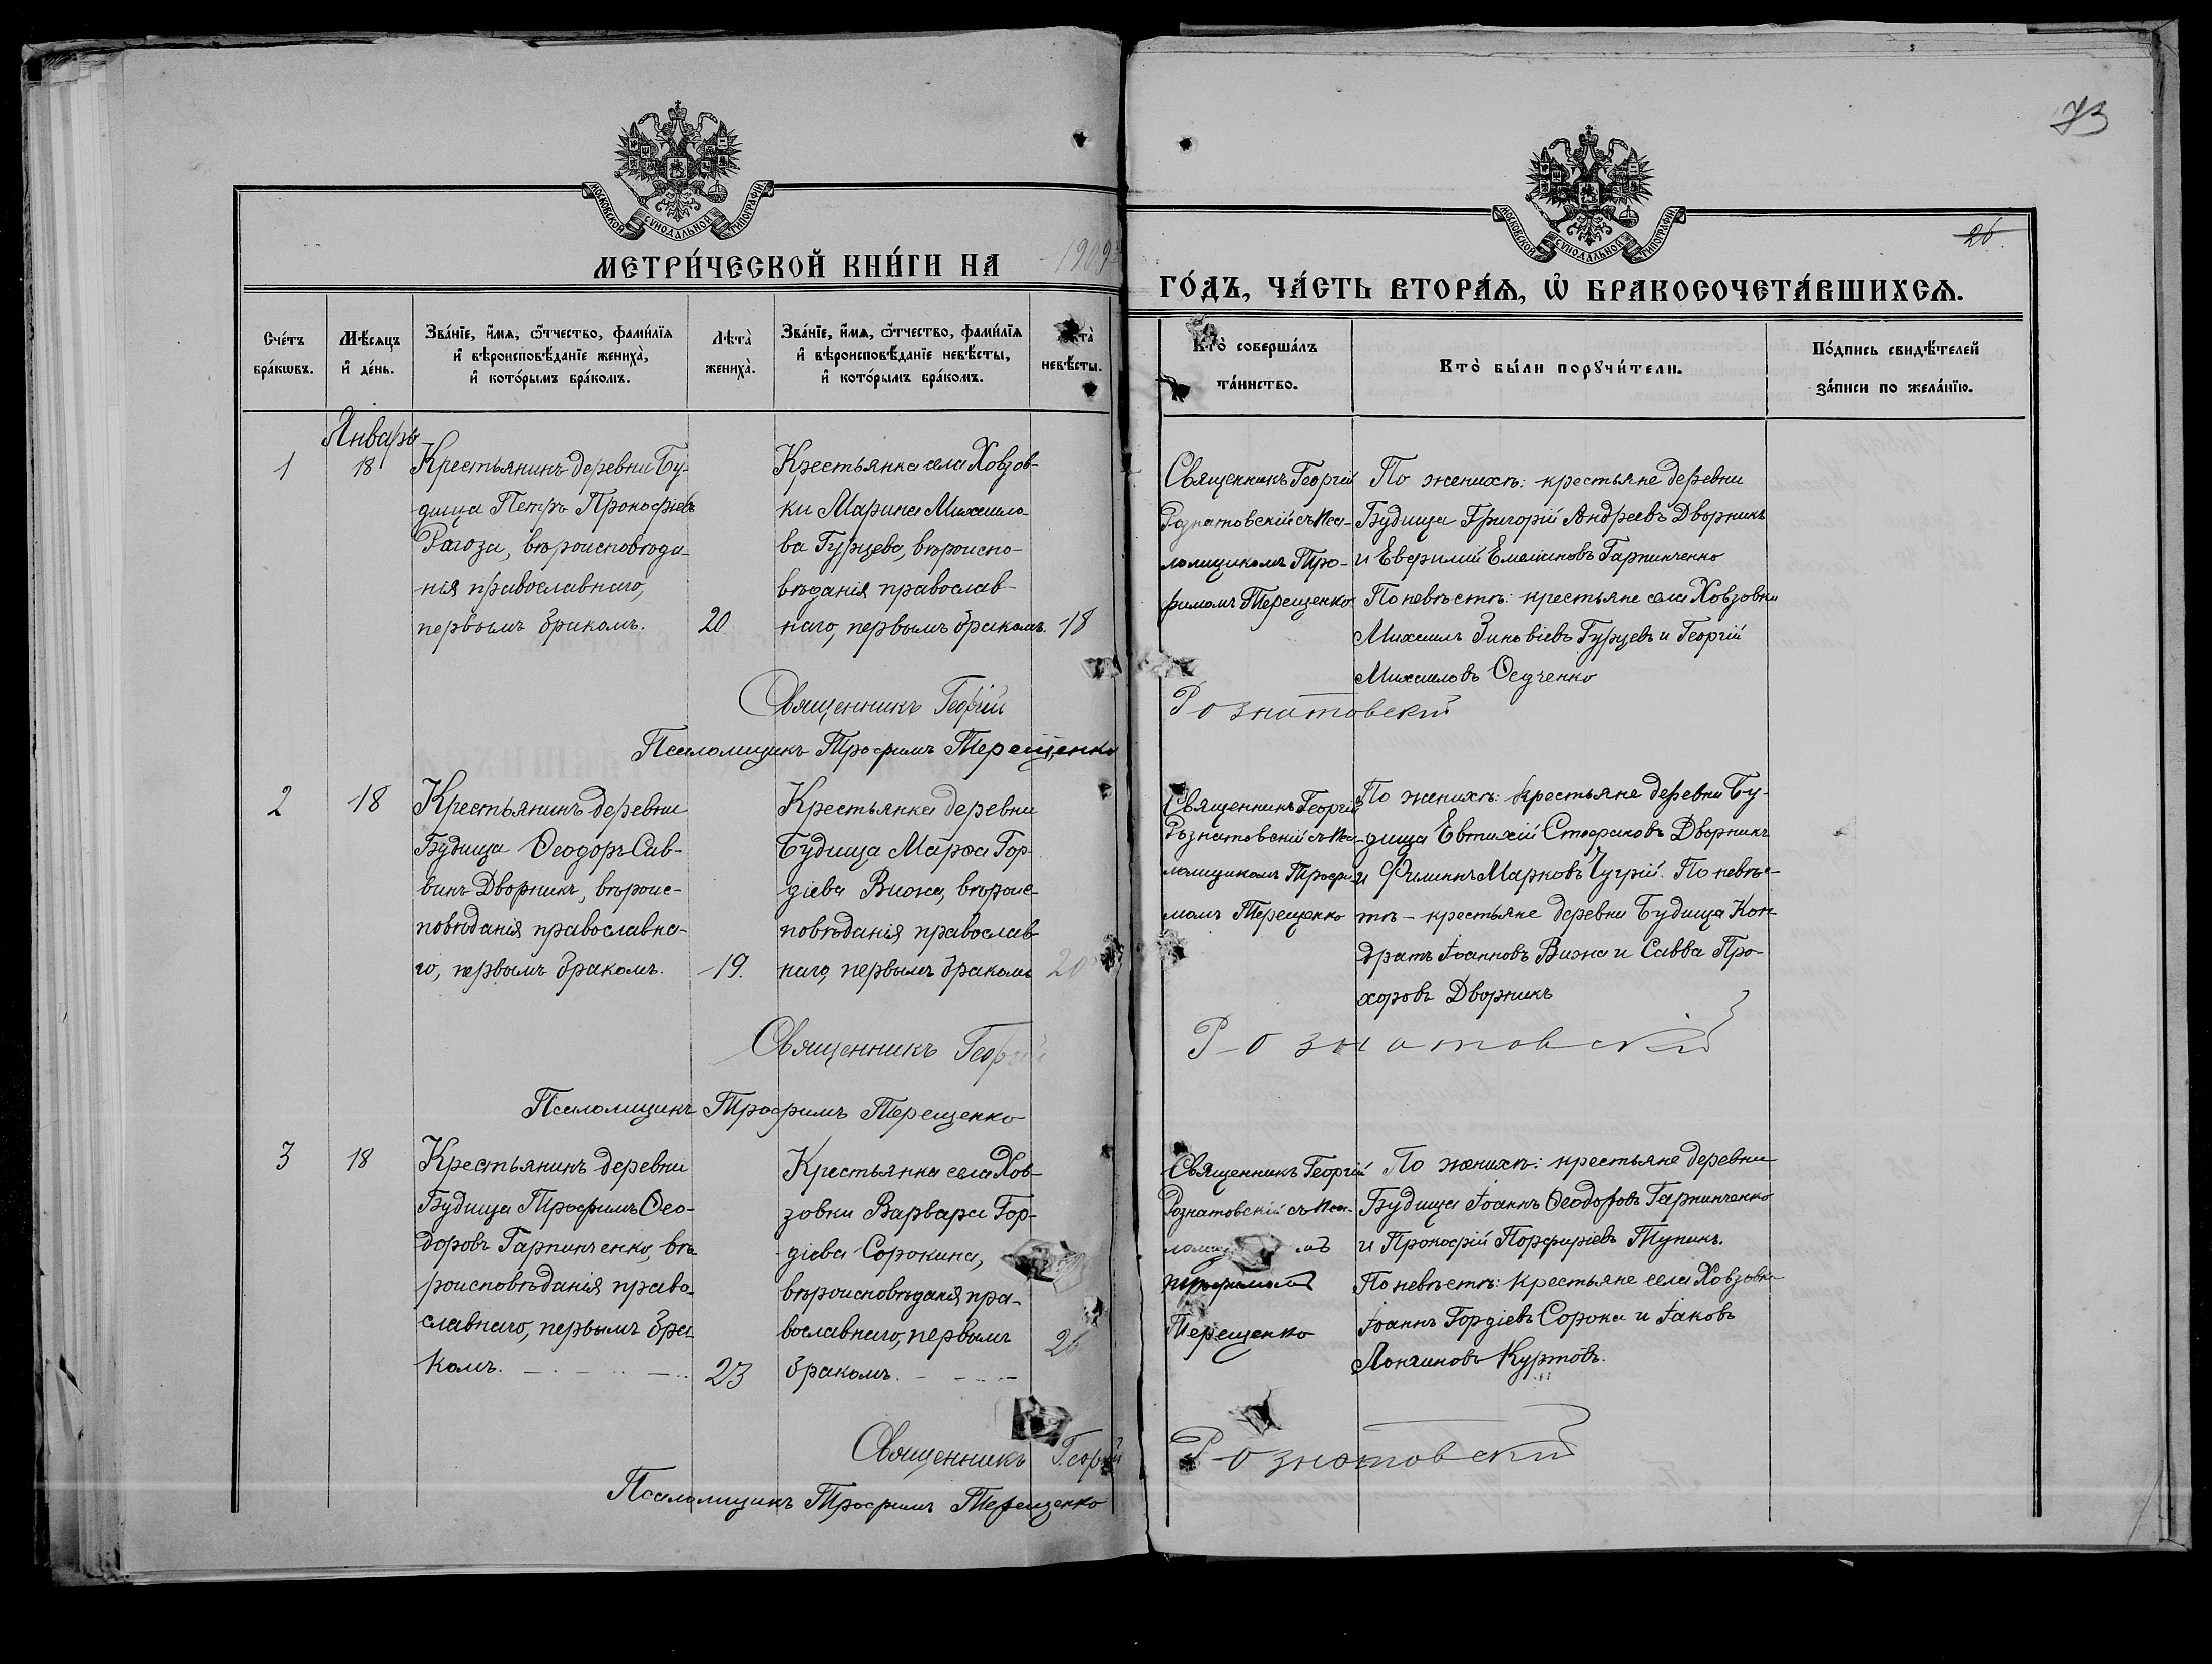 73
26.
МОСКОВСКОЙ СУНОДАЛЬНОЙ ТИПОГРАФІИ
МОСКОВСКОЙ СУНОДАЛЬНОЙ ТИПОГРАФІИ
МЕТРИ́ЧЕСКОЙ КНИ́ГИ НА 1909
ГО́ДЪ, ЧА́СТЬ ВТОРА́Ѧ, Ѽ БРАКОСОЧЕТА́ВШИХСѦ.
Сче́тъ
бра́кѡвъ.
Мѣ́сяцъ
и҆ де́нь.
Зва́нїе, и҆́мя, ѻ҆́тчество, фами́лїя
и҆ вѣроисповѣ́данїе жениха̀,
и҆ кото́рымъ бра́комъ.
Лѣта̀
жениха̀.
Зва́нїе, и҆́мя, ѻ҆́тчество, фами́лїя
и҆ вѣроисповѣ́данїе невѣ́сты,
и҆ кото́рымъ бра́комъ.
невѣ́сты.
Кто̀ соверша́лъ
та́инство.
Кто̀ бы́ли порꙋчи́тели.
По́дпись свидѣ́телей
за́писи по жела́нїю.
Январь
1
18
Крестьянинъ деревни Бу-
дища Петръ Прокофіевъ
Рагоза, вѣроисповѣда-
нія православнаго,
первымъ бракомъ.
20
Крестьянка села Ховзов-
ки Марина Михаило-
ва Гурцева, вѣроиспо-
вѣданія православ-
наго, первымъ бракомъ.
18
Священникъ Георгій
Рознатовскій съ Пса-
ломщикомъ Тро-
фимомъ Терещенко
По женихѣ: крестьяне деревни
Будища Григорій Андреевъ Дворникъ
и Евфимій Емельяновъ Гарпинченко
По невѣстѣ: крестьяне села Ховзовки
Михаилъ Зиновіевъ Гурцевъ и Георгій
Михаиловъ Осдченко
Священникъ Георгій Рознатовскій
Псаломщикъ Трофимъ Терещенко
2
18
Крестьянинъ деревни
Будища Ѳеодоръ Сав-
винъ Дворникъ, вѣроис-
повѣданія православна-
го, первымъ бракомъ.
19.
Крестьянка деревни
Будища Марѳа Гор-
діева Вижа, вѣроис-
повѣданія православ-
наго, первымъ бракомъ
20
Священникъ Георгій
Рознатовскій съ Пса-
ломщикомъ Трофи-
момъ Терещенко
По женихѣ: крестьяне деревни Бу-
дища Евтихій Стефановъ Дворникъ
и Филиппъ Марковъ Чугрій. По невѣс-
тѣ - крестьяне деревни Будища Кон-
дратъ Іоанновъ Вижа и Савва Про-
хоровъ Дворникъ
Священникъ Георгій Рознатовскій
Псаломщикъ Трофимъ Терещенко
3
18
Крестьянинъ деревни
Будища Трофимъ Ѳео-
доровъ Гарпинченко, вѣ-
роисповѣданія право-
славнаго, первымъ бра-
комъ.
23
Крестьянка села Хов-
зовки Варвара Гор-
діева Сорокина,
вѣроисповѣданія пра-
вославнаго, первымъ
бракомъ.
Священникъ Георгій
Рознатовскій съ Пса-
Трофимомъ
Терещенко
По женихѣ: крестьяне деревни
Будища Іоаннъ Ѳеодоровъ Гарпинченко
и Прокофій Порфиріевъ Тупикъ.
По невѣстѣ: крестьяне села Ховзовки
Іоаннъ Гордіевъ Сорока и Іаковъ
Лонгиновъ Куртовъ.
Священникъ Георгій Рознатовскій
Псаломщикъ Трофимъ Терещенко